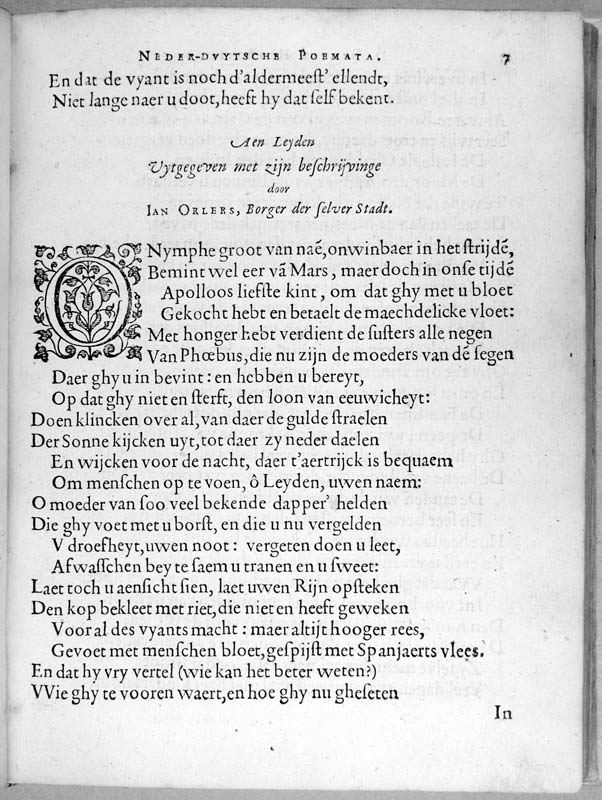 NEDER-DVYTSCHE POEMATA. 7
En dat de vyant is noch d'aldermeeſt' ellendt,
Niet lange naer u doot, heeft hy dat ſelf bekent.
Aen Leyden
Uytgegeven met zijn beſchrijvinge
door
IAN ORLERS, Borger der ſelver Stadt.
O Nymphe groot van naẽ, onwinbaer in het ſtrijdẽ,
Bemint wel eer vã Mars, maer doch in onſe tijdẽ
Apolloos liefſte kint, om dat ghy met u bloet
Gekocht hebt en betaelt de maechdelicke vloet:
Met honger hebt verdient de ſuſters alle negen
Van Phœbus, die nu zijn de moeders van dẽ ſegen
Daer ghy u in bevint: en hebben u bereyt,
Op dat ghy niet en ſterft, den loon van eeuwicheyt:
Doen klincken over al, van daer de gulde ſtraelen
Der Sonne kijcken uyt, tot daer zy neder daelen
En wijcken voor de nacht, daer t'aertrijck is bequaem
Om menſchen op te voen, ô Leyden, uwen naem:
O moeder van ſoo veel bekende dapper' helden
Die ghy voet met u borſt, en die u nu vergelden
V droefheyt, uwen noot: vergeten doen u leet,
Afwaſſchen bey te ſaem u tranen en u ſweet:
Laet toch u aenſicht ſien, laet uwen Rijn opſteken
Den kop bekleet met riet, die niet en heeft geweken
Voor al des vyants macht: maer altijt hooger rees,
Gevoet met menſchen bloet, geſpijſt met Spanjaerts vlees.
En dat hy vry vertel (wie kan het beter weten?)
VVie ghy te vooren waert, en hoe ghy nu gheſeten
In